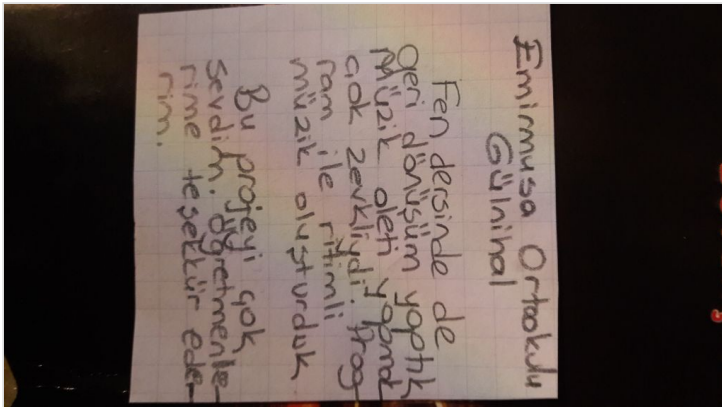 Emirmusa Ortaokulu
Gülnihal
Fen dersinde de
geri dönüşüm yaptık
Müzik aleti yapmak
çok zevkliydi. Prog-
ram ile ritimli
müzik oluşturduk.
Bu projeyi çok
sevdim. Öğretmenle-
rime teşekkür ede-
rim.